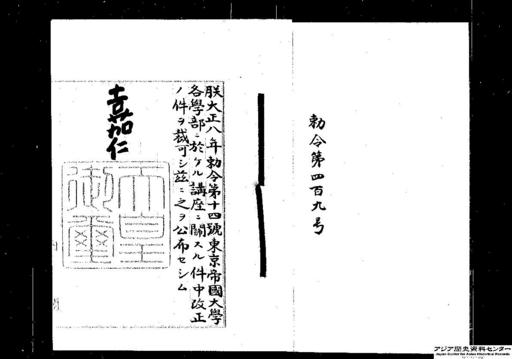 勅令第四百九号
朕大正八年勅令第十四號東京帝國大學
各學部ニ於ケル講座ニ關スル件中改正
ノ件ヲ裁可シ茲ニ之ヲ公布セシム
嘉仁
天皇
御璽
アジア歴史資料センター
Japan Center for Asian Historical Records